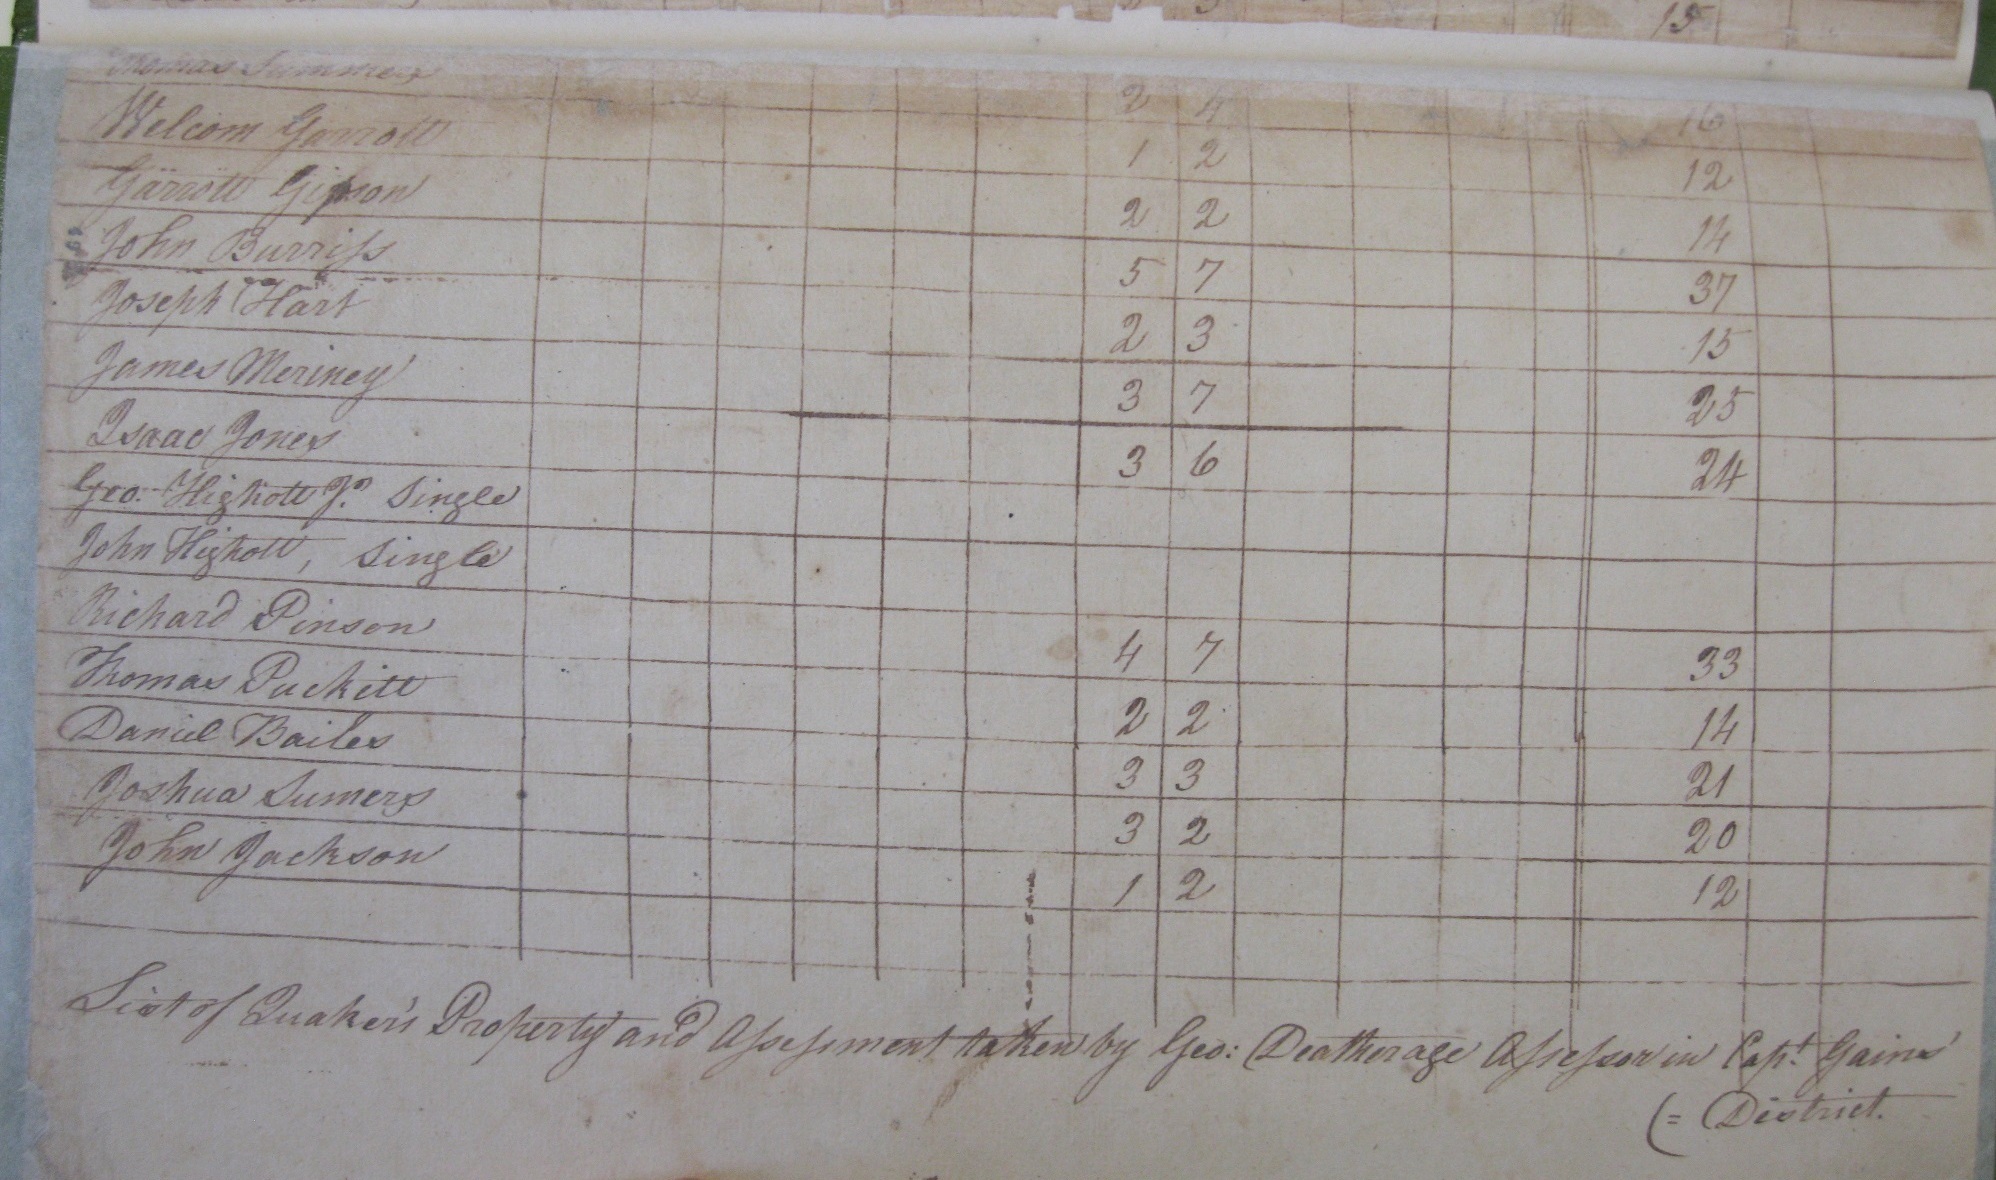 15
Thomas Summers 2 4 16
Welcom Garrott 1 2 12
Garrott Gipson 2 2 14
John Burriss 5 7 37
Joseph Hart 2 3 15
James Meriney 3 7 25
Isaac Jones 3 6 24
Geo. Highott Jr. Single
John Highott, Single
Richard Pinson 4 7 33
Thomas Puckitt 2 2 14
Daniel Bailes 3 3 21
Joshua Sumers 3 2 20
John Jackson 1 2 12
List of Quaker's Property and Assessment taken by Geo: Deatherage Assessor in Capt. Gains
(= District.